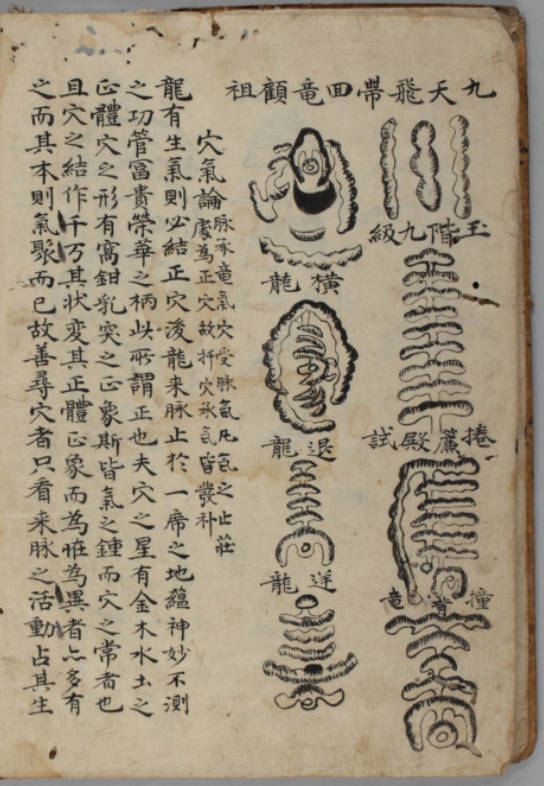 九天飛帶
玉階九級
捲簾殿試
撞背竜
回竜顧祖
橫龍
退龍
逆龍
穴氣論
脉承竜氣穴受脉氣凡氣之止莊
處為正穴故扦穴承氣皆發补
龍有生氣則必結正穴後龍来脉止於一席之地蘊神妙不測
之功管富貴榮華之柄此所謂正也夫穴之星有金木水土之
正體穴之形有窩鉗乳突之正象斯皆氣之鍾而穴之常者也
且穴之結作千万其状変其正體正象而為恠為異者亦多有
之而其本則氣聚而已故善尋穴者只看来脉之活動占其生